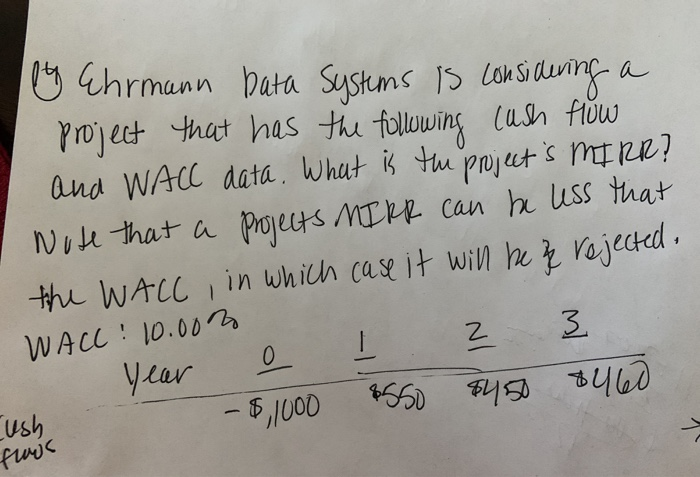 19 Ehrmann Data Systems is considering a
project that has the following cash flow
and WACC data. What is the project's MIRR?
Note that a projects MIRR can be less that
the WACC, in which case it will be rejected.
WACC: 10.00%
Year 0 1 2 3
Cash flows -$,1000 $550 $450 $460
→